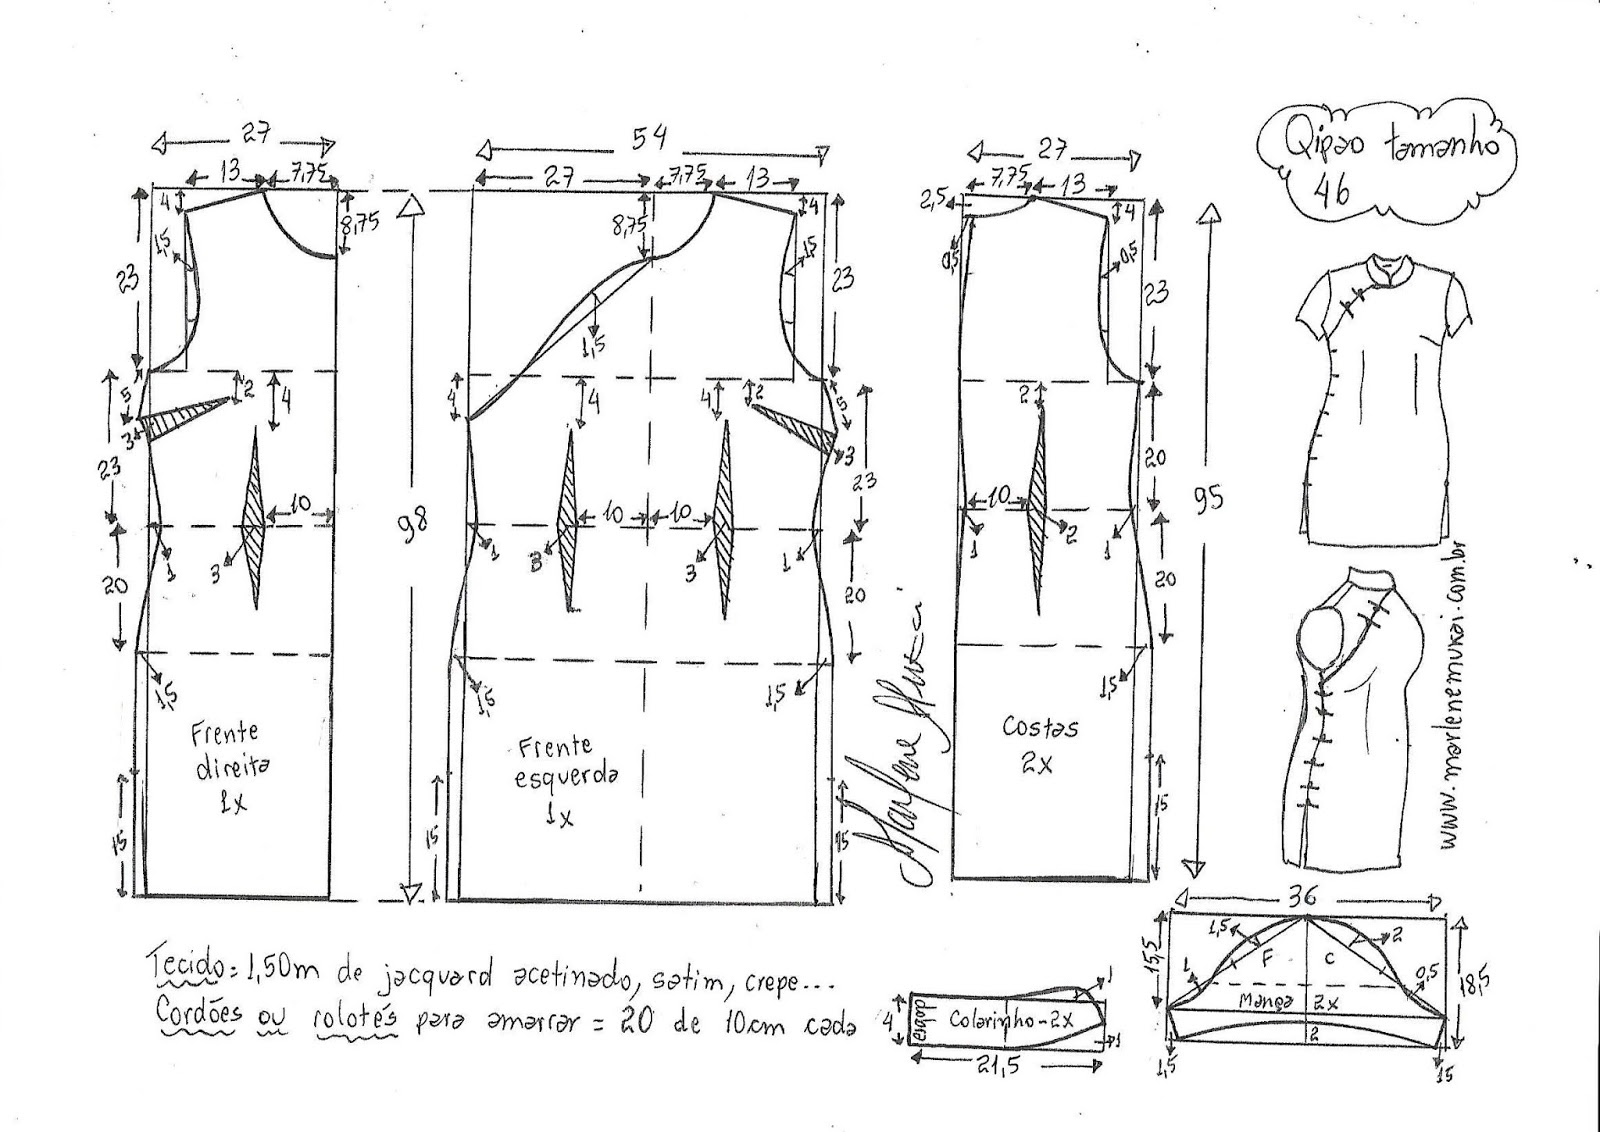 Qipao tamanho
46
27
13
7,75
4
8,75
1,5
23
5
3
2
4
23
10
1
3
20
1,5
Frente
direita
1x
15
98
54
27
7,75
13
8,75
4
1,5
23
1,5
4
4
4
2
5
3
23
10
10
1
3
3
1
20
1,5
1,5
Frente
esquerda
1x
15
15
Marlene Mukai
27
7,75
13
2,5
4
0,5
0,5
23
2
20
10
1
2
1
20
1,5
Costas
2x
15
95
www.marlenemukai.com.br
Tecido = 1,50m de jacquard acetinado, satim, crepe...
Cordões ou rolotés para amarrar = 20 de 10cm cada
4
dobra
Colarinho - 2x
1
1
21,5
36
15,5
1,5
2
F
C
1
0,5
18,5
Manga 2x
2
1,5
15